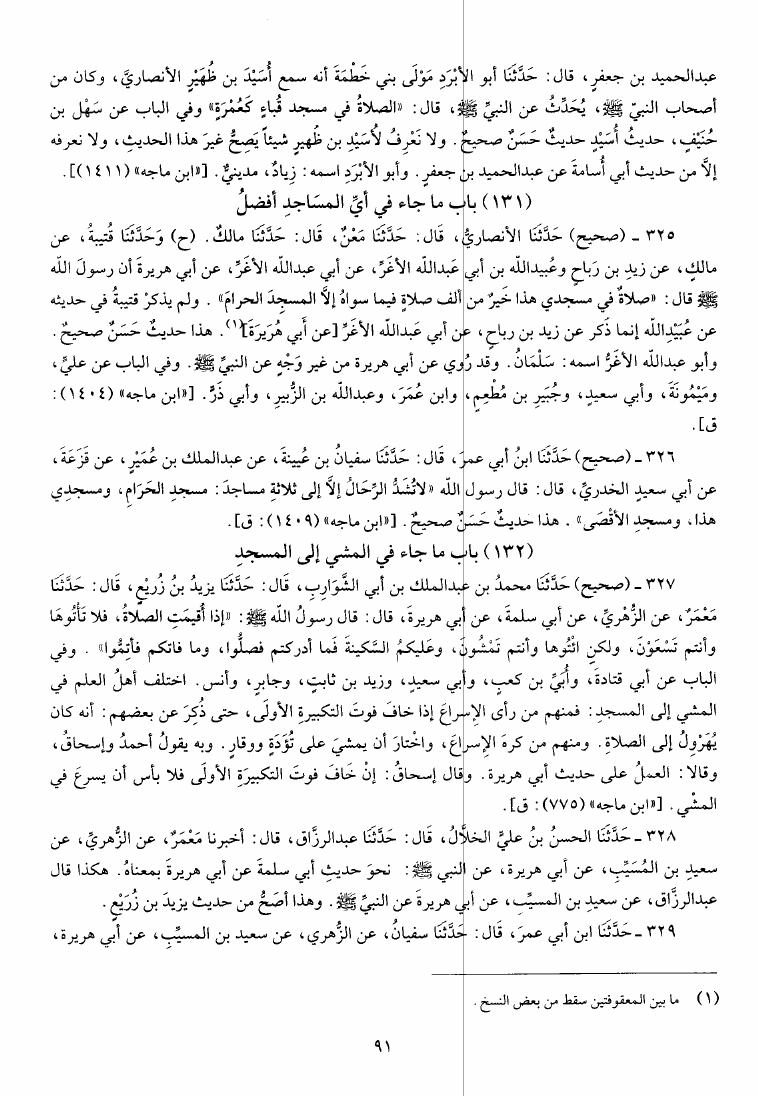 عبدالحميد بن جعفرٍ، قال: حَدَّثَنَا أبو الأَبْرَدِ مَوْلَى بني خَطْمَةَ أنه سمع أُسَيْدَ بن ظُهَيْرٍ الأنصاريَّ، وكان من
أصحاب النبيّ ﷺ، يُحَدِّثُ عن النبيِّ ﷺ، قال: «الصلاةُ في مسجد قُباءٍ كَعُمْرَةٍ» وفي الباب عن سَهْل بن
حُنَيْفٍ، حديثُ أُسَيْدٍ حديثٌ حَسَنٌ صحيحٌ. ولا نَعْرِفُ لأُسَيْدِ بن ظُهيرٍ شيئاً يَصِحُّ غيرَ هذا الحديثِ، ولا نعرفه
إلاَّ من حديث أبي أُسامةَ عن عبدالحميد بن جعفرٍ. وأبو الأبْرَدِ اسمه: زِيادٌ، مدينيٌّ. [«ابن ماجه» (١٤١١)].
(١٣١) باب ما جاء في أيِّ المسَاجدِ أفضلُ
٣٢٥ ـ (صحيح) حَدَّثَنَا الأنصاريُّ، قَال: حَدَّثَنَا مَعْنٌ، قَال: حَدَّثَنَا مالكٌ. (ح) وَحَدَّثَنَا قُتيبةُ، عن
مالكٍ، عن زيدِ بن رَباحٍ وعُبيدالله بن أبي عَبدالله الأغَرِّ، عن أبي عبدالله الأغَرِّ، عن أبي هريرةَ أن رسولَ الله
ﷺ قال: «صلاةٌ في مسجدي هذا خَيرٌ من ألف صلاةٍ فيما سواهُ إلاَّ المسجدَ الحرامَ». ولم يذكرْ قتيبةُ في حديثه
عن عُبَيْدِالله إنما ذَكر عن زيد بن رباحٍ، عن أبي عَبدالله الأغرِّ [عن أبي هُرَيرَةَ](١). هذا حديثٌ حَسَنٌ صحيحٌ.
وأبو عبدالله الأغَرُّ اسمه: سَلْمَانُ. وقد رُوي عن أبي هريرة من غير وَجْهٍ عن النبيِّ ﷺ. وفي الباب عن عليٍّ،
ومَيْمُونَةَ، وأبي سعيدٍ، وجُبَيرِ بن مُطْعِمٍ، وابن عُمَرَ، وعبدالله بن الزُّبيرِ، وأبي ذَرٍّ. [«ابن ماجه» (١٤٠٤):
ق].
٣٢٦ ـ (صحيح) حَدَّثَنَا ابنُ أبي عمرَ، قَال: حَدَّثَنَا سفيانُ بن عُيينةَ، عن عبدالملك بن عُمَيْرٍ، عن قَزَعَةَ،
عن أبي سعيدٍ الخدريِّ، قال: قال رسول الله «لاتُشَدُّ الرِّحَالُ إلاَّ إلى ثلاثةِ مساجدَ: مسجدِ الحَرَامِ، ومسجدِي
هذا، ومسجدِ الأقْصَى». هذا حديثٌ حَسَنٌ صحيحٌ. [«ابن ماجه» (١٤٠٩): ق].
(١٣٢) باب ما جاء في المشي إلى المسجدِ
٣٢٧ ـ (صحيح) حَدَّثَنَا محمدُ بن عبدالملك بن أبي الشَّوَارِبِ، قَال: حَدَّثَنَا يزيدُ بنُ زُرَيْعٍ، قَال: حَدَّثَنَا
مَعْمَرٌ، عن الزُّهْرِيِّ، عن أبي سلمةَ، عن أبي هريرةَ، قال: قال رسولُ الله ﷺ: «إذا أُقيمَتِ الصلاةُ، فلا تَأْتُوهَا
وأنتم تَسْعَوْنَ، ولكنِ ائْتُوها وأنتم تَمْشُونَ، وعَليكمُ السَّكينةَ فَما أدركتم فصلُّوا، وما فاتكم فأتِمُّوا». وفي
الباب عن أبي قتادةَ، وأُبَيِّ بن كعبٍ، وأبي سعيدٍ، وزيد بن ثابتٍ، وجابرٍ، وأنس. اختلف أهلُ العلم في
المشي إلى المسجدِ: فمنهم من رأى الإسراعَ إذا خافَ فوتَ التكبيرةِ الأولَى، حتى ذُكِرَ عن بعضهم: أنه كان
يُهَرْوِلُ إلى الصلاةِ. ومنهم من كرهَ الإسراعَ، واخْتارَ أن يمشيَ على تُؤَدَةٍ ووقارٍ. وبه يقولُ أحمدُ وإسحاقُ،
وقالا: العملُ على حديث أبي هريرة. وقال إسحاقُ: إنْ خَافَ فوتَ التكبيرَةِ الأولَى فلا بأس أن يسرعَ في
المشْي. [«ابن ماجه» (٧٧٥): ق].
٣٢٨ ـ حَدَّثَنَا الحسنُ بنُ عليٍّ الخلاَّلُ، قَال: حَدَّثَنَا عبدالرزَّاق، قال: أخبرنا مَعْمَرٌ، عن الزُّهريِّ، عن
سعيدِ بن المُسَيِّبِ، عن أبي هريرة، عن النبي ﷺ: نحوَ حديثِ أبي سلمةَ عن أبي هريرةَ بمعناهُ. هكذا قال
عبدالرزَّاقِ، عن سعيدِ بن المسيِّب، عن أبي هريرةَ عن النبيِّ ﷺ. وهذا أصَحُّ من حديث يزيدَ بن زُرَيْعٍ.
٣٢٩ ـ حَدَّثَنَا ابن أبي عمرَ، قَال: حَدَّثَنَا سفيانُ، عن الزُّهري، عن سعيد بن المسيِّبِ، عن أبي هريرة،
(١) ما بين المعقوفتين سقط من بعض النسخ.
٩١